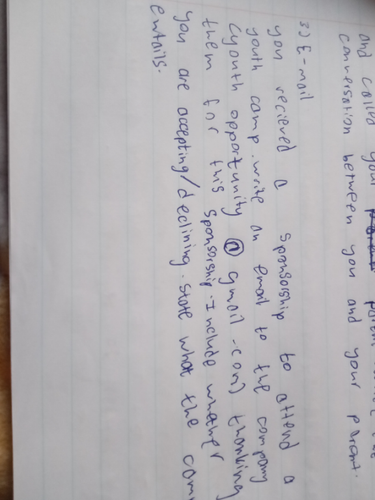 and called your parent
conversation between you and your parent.
3) E-mail
you recieved a sponsorship to attend a
youth camp. write an email to the company
(youth opportunity @ gmail.com) thanking
them for this sponsorship. Include whether
you are accepting/declining. state what the
entails.